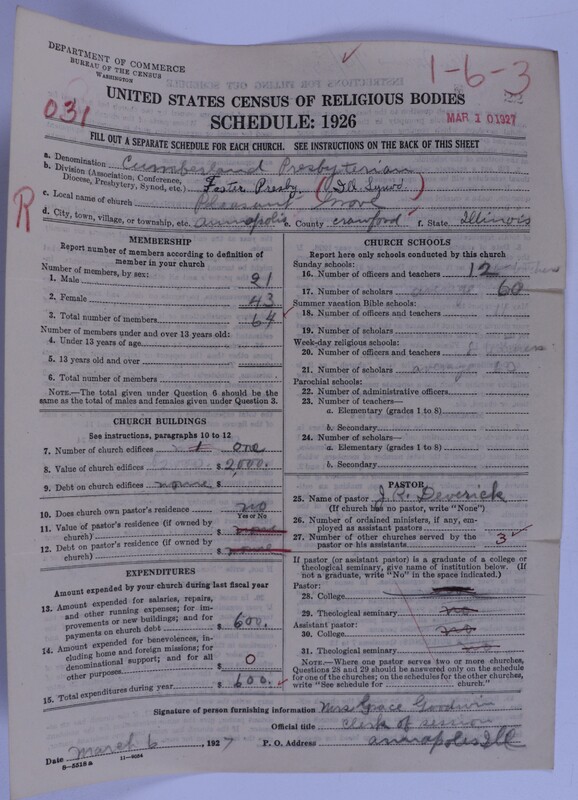 DEPARTMENT OF COMMERCE
BUREAU OF THE CENSUS
WASHINGTON
1-6-3
031
UNITED STATES CENSUS OF RELIGIOUS BODIES
SCHEDULE: 1926
MAR 10 1927
FILL OUT A SEPARATE SCHEDULE FOR EACH CHURCH. SEE INSTRUCTIONS ON THE BACK OF THIS SHEET
a. Denomination Cumberland Presbyterian
b. Division (Association, Conference, Diocese, Presbytery, Synod, etc.) Foster Presby. (
c. Local name of church Pleasant Grove
R
d. City, town, village, or township, etc. annapolis e. County crawford f. State Illinois
MEMBERSHIP
Report number of members according to definition of member in your church
Number of members, by sex:
1. Male 21
2. Female 43
3. Total number of members 64
Number of members under and over 13 years old:
4. Under 13 years of age
5. 13 years old and over
6. Total number of members
NOTE.—The total given under Question 6 should be the same as the total of males and females given under Question 3.
CHURCH BUILDINGS
See instructions, paragraphs 10 to 12
7. Number of church edifices 1 one
8. Value of church edifices $ 2000.
9. Debt on church edifices none $
10. Does church own pastor's residence? no
Yes or No
11. Value of pastor's residence (if owned by church) $ none
12. Debt on pastor's residence (if owned by church) $ none
EXPENDITURES
Amount expended by your church during last fiscal year
13. Amount expended for salaries, repairs, and other running expenses; for improvements or new buildings; and for payments on church debt $ 600.
14. Amount expended for benevolences, including home and foreign missions; for denominational support; and for all other purposes $ 0
15. Total expenditures during year $ 600.
CHURCH SCHOOLS
Report here only schools conducted by this church
Sunday schools:
16. Number of officers and teachers 12
17. Number of scholars average 60
Summer vacation Bible schools:
18. Number of officers and teachers
19. Number of scholars
Week-day religious schools:
20. Number of officers and teachers
21. Number of scholars average
Parochial schools:
22. Number of administrative officers
23. Number of teachers—
a. Elementary (grades 1 to 8)
b. Secondary
24. Number of scholars—
a. Elementary (grades 1 to 8)
b. Secondary
PASTOR
25. Name of pastor J. R. Deverick
(If church has no pastor, write "None")
26. Number of ordained ministers, if any, employed as assistant pastors
27. Number of other churches served by the pastor or his assistants 3
If pastor (or assistant pastor) is a graduate of a college or theological seminary, give name of institution below. (If not a graduate, write "No" in the space indicated.)
Pastor:
28. College
29. Theological seminary no
Assistant pastor:
30. College no
31. Theological seminary no
NOTE.—Where one pastor serves two or more churches, Questions 28 and 29 should be answered only on the schedule for one of the churches; on the schedules for the other churches, write "See schedule for church."
Signature of person furnishing information Mrs Grace Goodwin
Official title Clerk of session
Date March 6, 1927 P. O. Address annapolis Ill
8-5518 a 11-9084